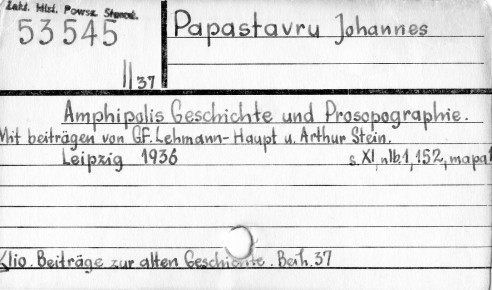 Zakł. Hist. Powsz. Staroż.
53545
Papastavru Johannes
II 37
Amphipolis Geschichte und Prosopographie.
Mit beiträgen von G.F. Lehmann-Haupt u. Arthur Stein.
Leipzig 1936 s. XI, nlb. 1, 152, mapa 1
Klio. Beiträge zur alten Geschichte. Beih. 37